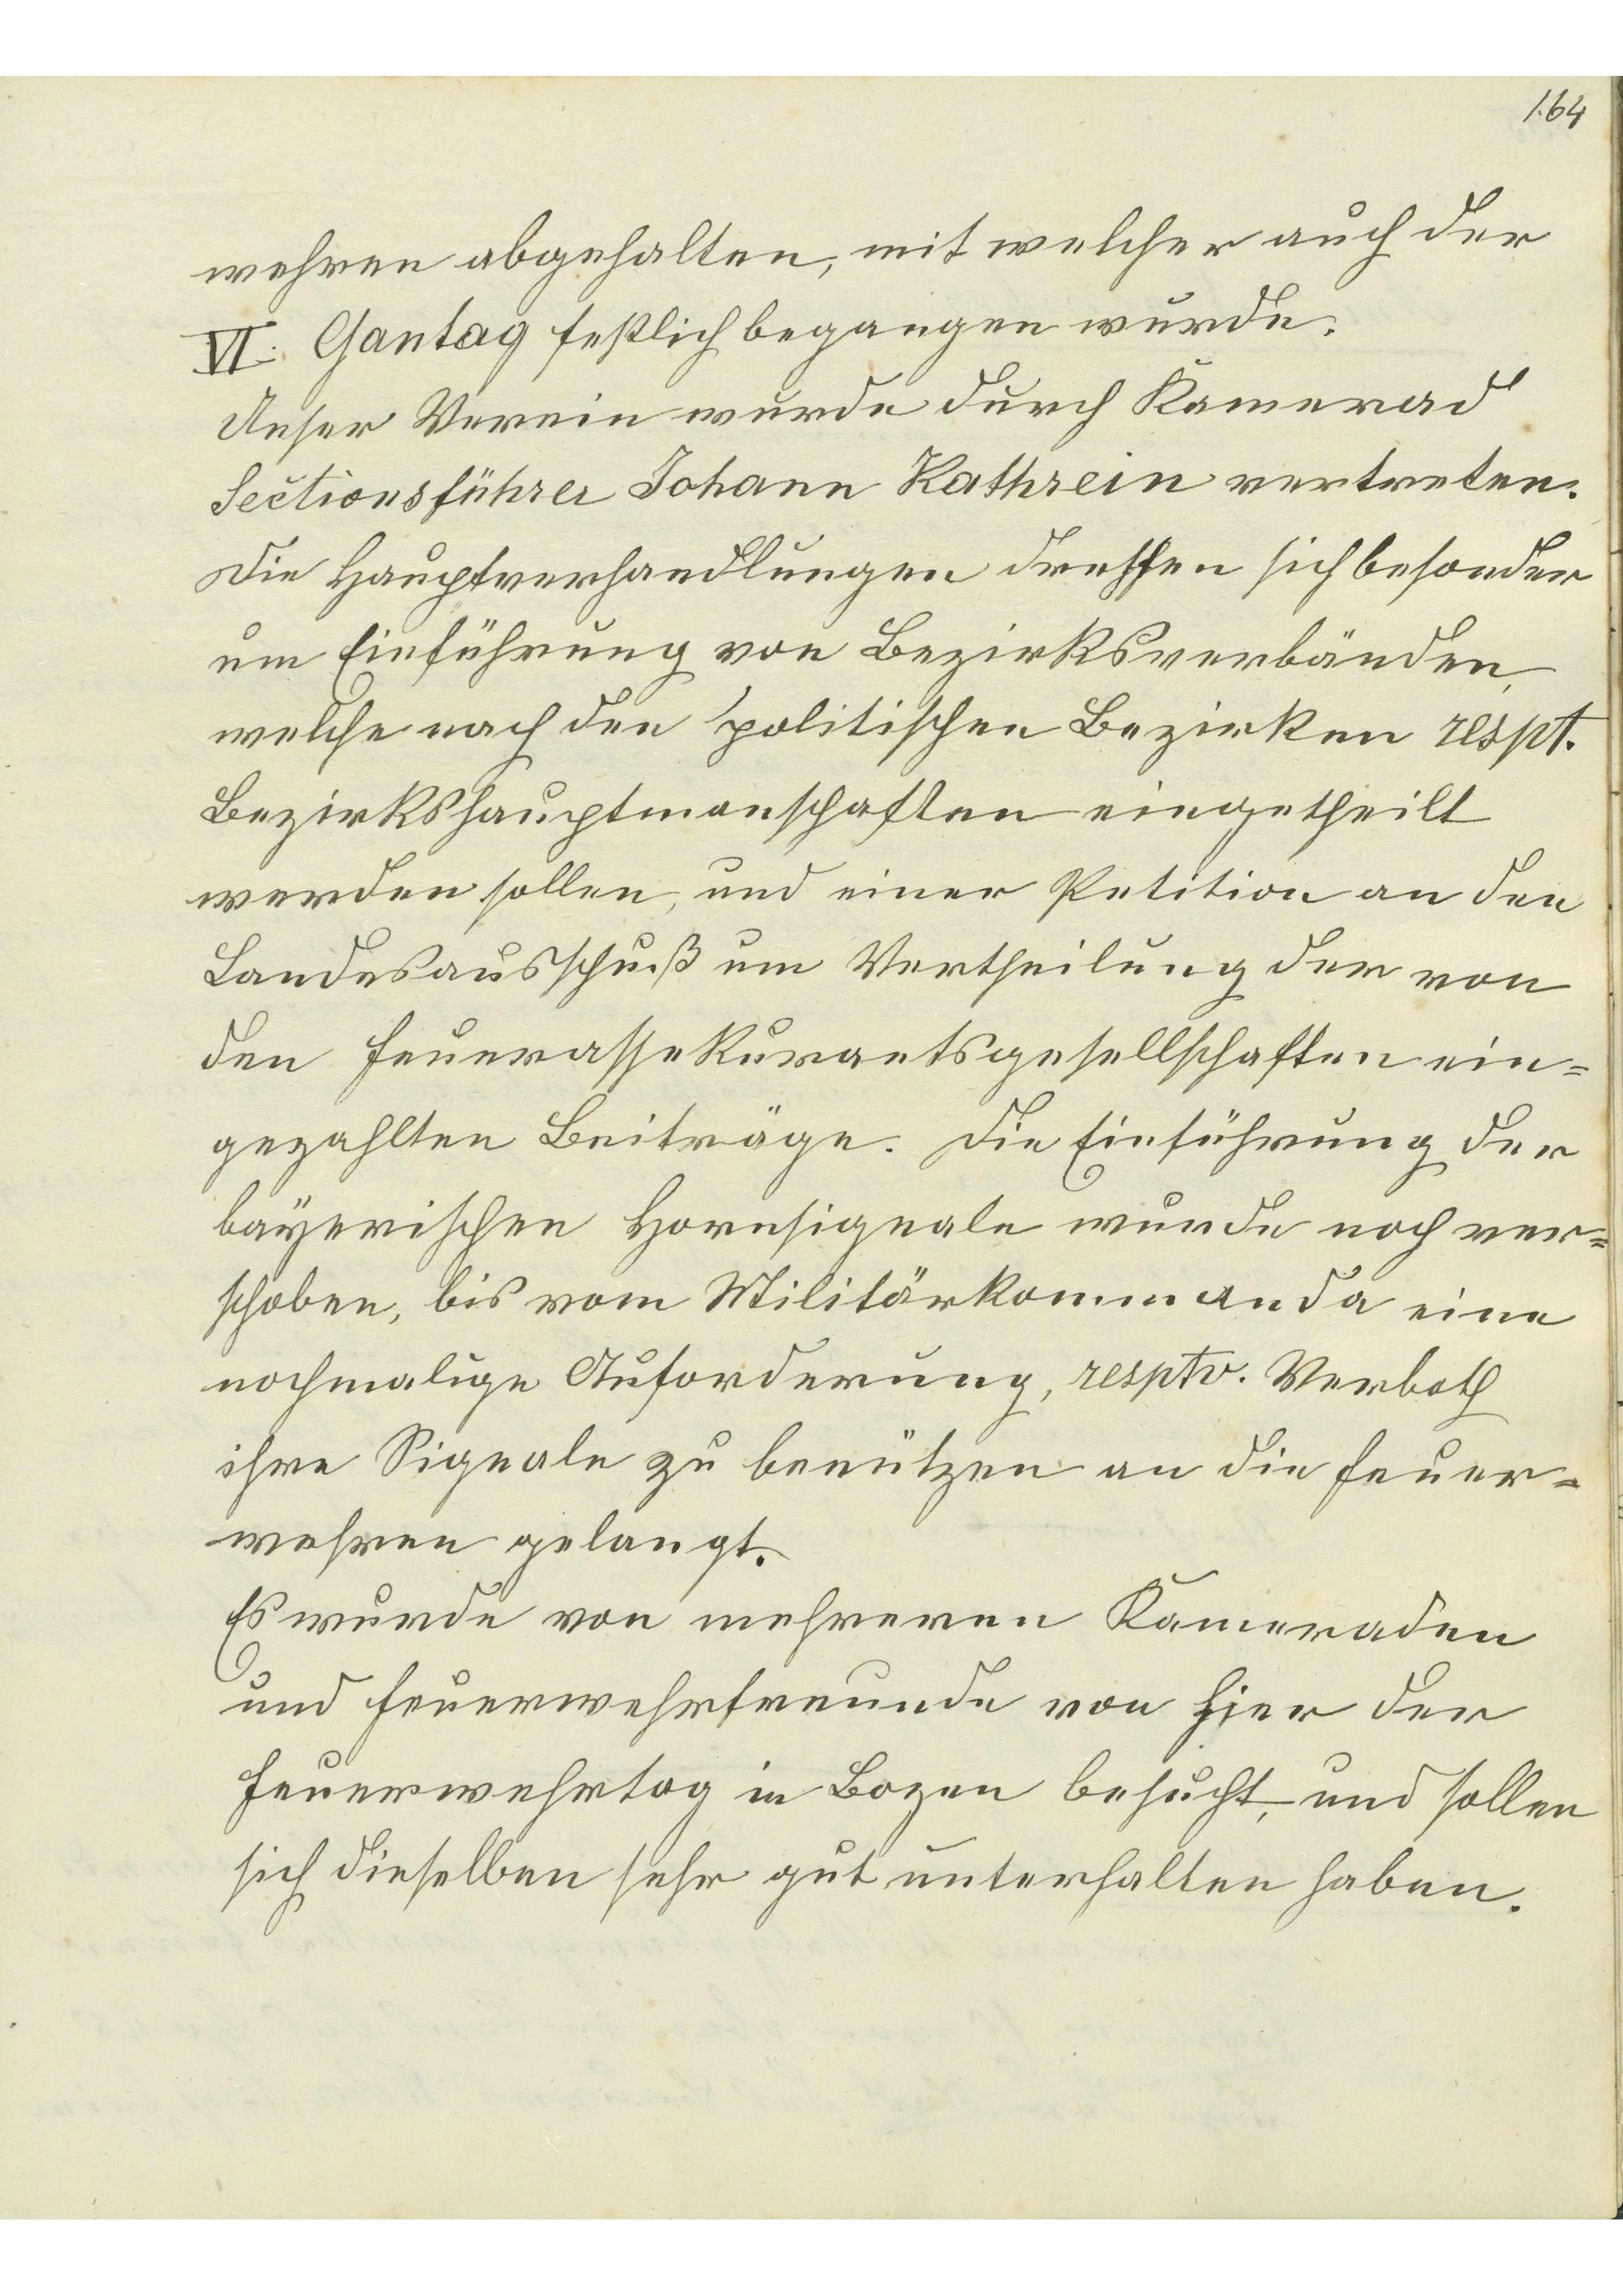 164
wehren abgehalten, mit welcher auch der
VI. Gautag festlich begangen wurde.
Unser Verein wurde durch Kamerad
Sectionsführer Johann Kathrein vertreten.
Die Hauptverhandlungen drehten sich besonder
um Einführung von Bezirksverbänden,
welche nach den politischen Bezirken respt.
Bezirkshauptmanschaften eingetheilt
werden sollen, und einer Petition an den
Landesausschuß um Vertheilung der von
den Feuerassekurantsgesellschaften ein=
gezahlten Beiträge. Die Einführung der
bayerischen Hornsignale wurde noch ver=
schoben, bis vom Militärkommanda eine
nochmalige Auforderung, resptv. Verboth
ihre Signale zu benützen an die Feuer=
wehren gelangt.
Es wurde von mehreren Kameraden
und Feuerwehrfreunde von hier der
Feuerwehrtag in Bozen besucht, und sollen
sich dieselben sehr gut unterhalten haben.